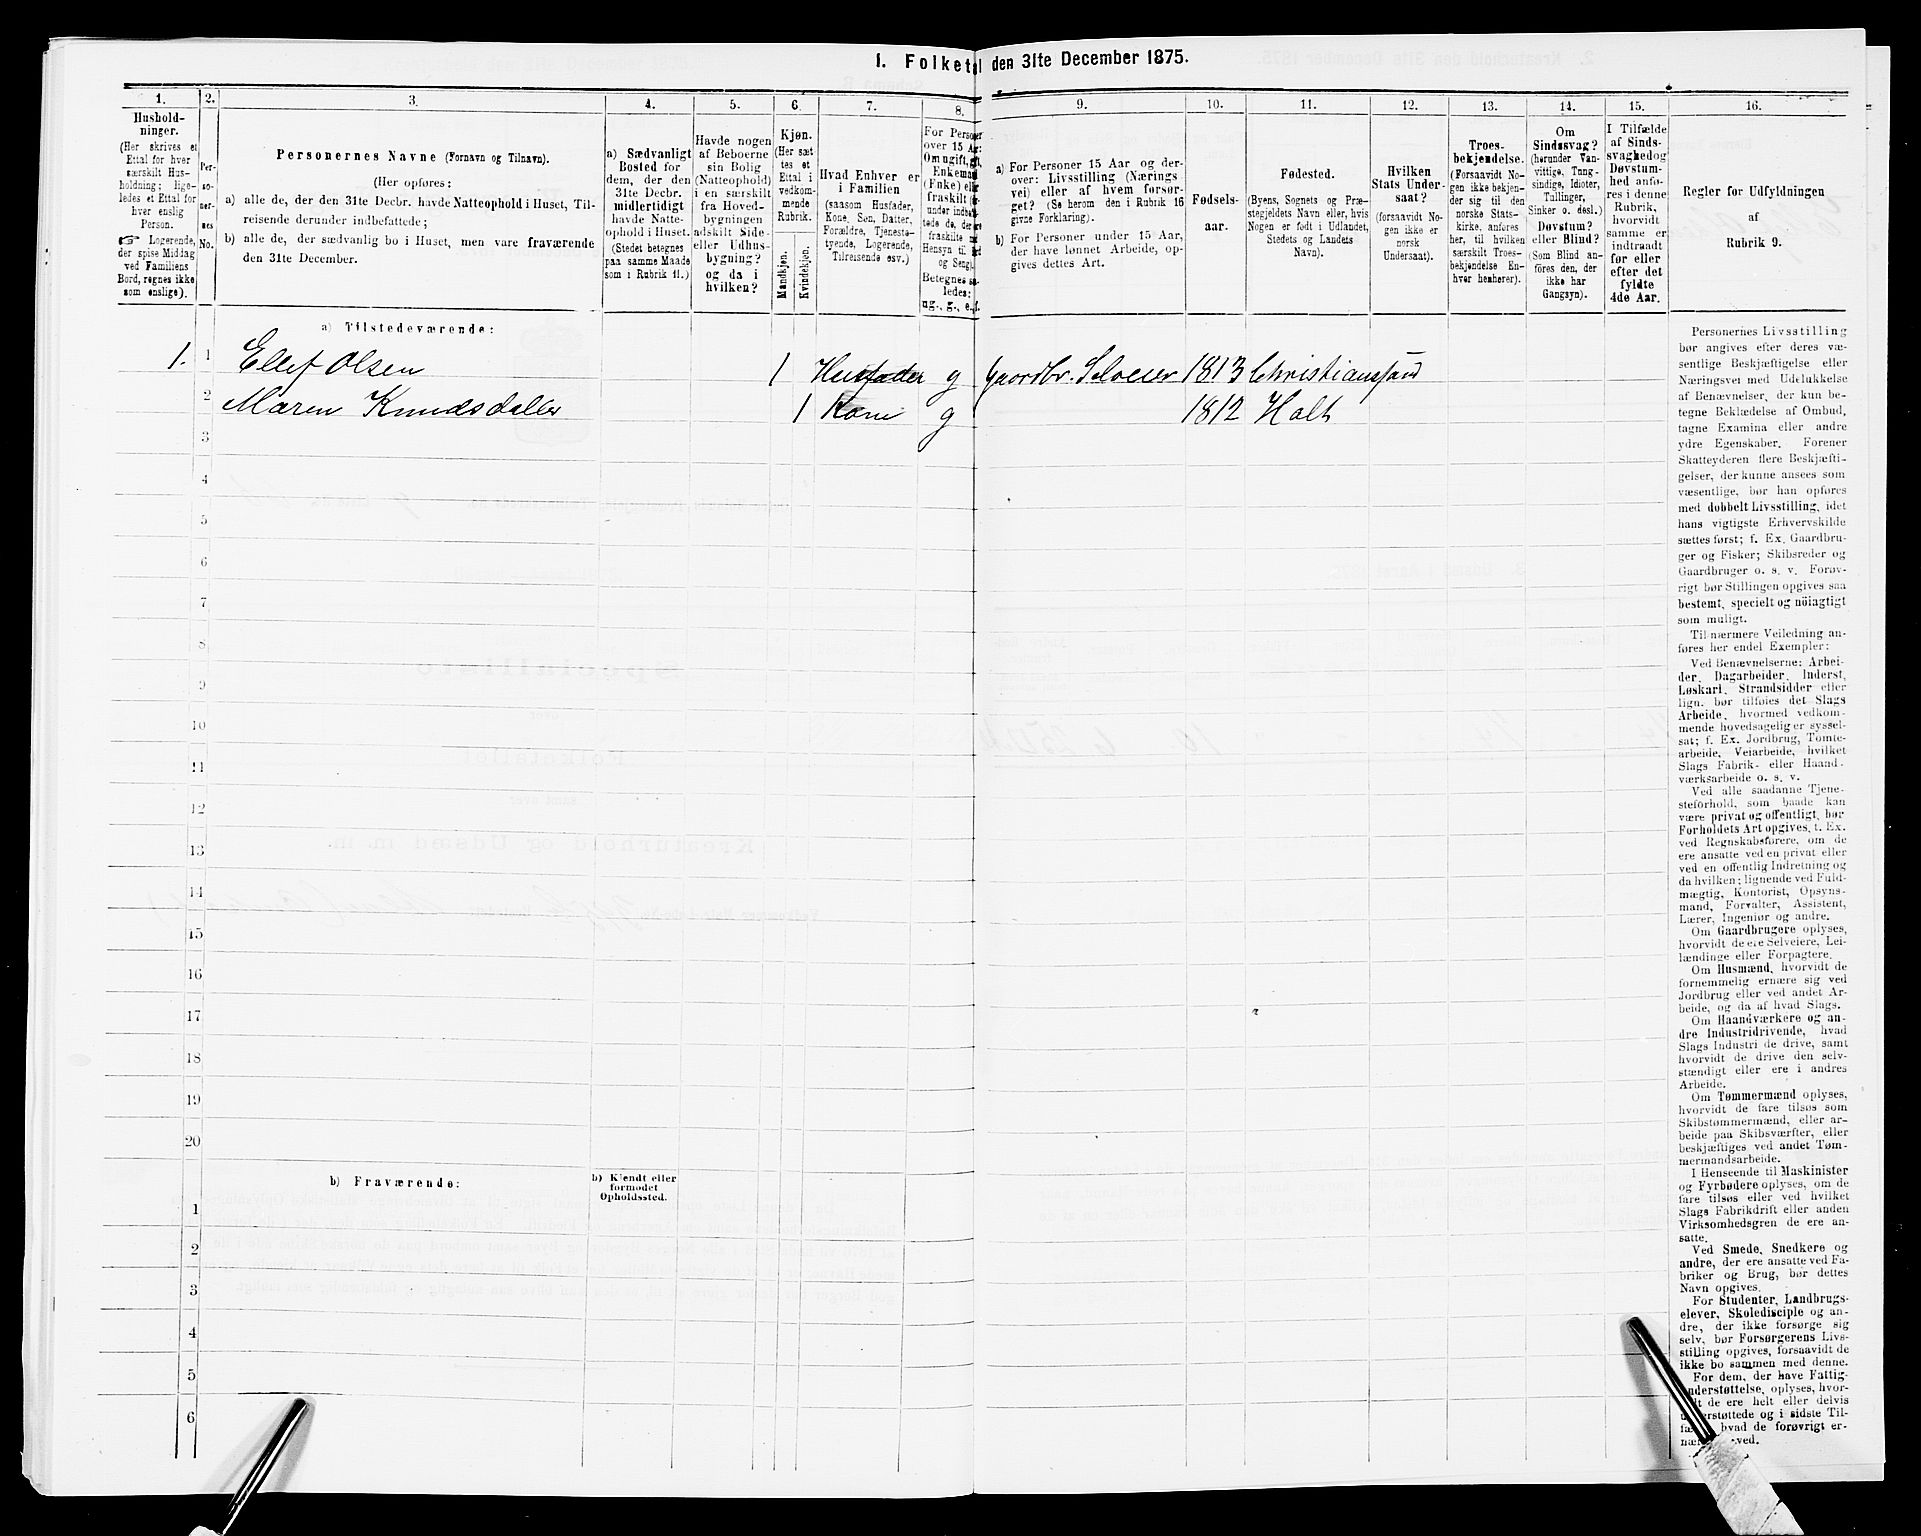 1. Folketal den 31te December 1875.
1.
2.
3.
4.
5.
6.
7.
8.
9.
10.
11.
12.
13.
14.
15.
16.
Hushold-
ninger.
(Her skrives et
Ettal for hver
særskilt Hus-
holdning; lige-
ledes et Ettal for
hver enslig
Person.
☞ Logerende,
der spise Middag
ved Familiens
Bord, regnes ikke
som enslige).
Per-
so-
ner-
nes
No.
Personernes Navne (Fornavn og Tilnavn).
(Her opføres:
a) alle de, der den 31te Decbr. havde Natteophold i Huset, Til-
reisende derunder indbefattede;
b) alle de, der sædvanlig bo i Huset, men vare fraværende
den 31te December.
a) Sædvanligt
Bosted for
dem, der den
31te Decbr.
midlertidigt
havde Natte-
ophold i Huset.
(Stedet betegnes
paa samme Maade
som i Rubrik 11.)
Havde nogen
af Beboerne
sin Bolig
(Natteophold)
i en særskilt
fra Hoved-
bygningen
adskilt Side-
eller Udhus-
bygning?
og da i
hvilken?
Kjøn.
(Her sæt-
tes et
Ettal i
vedkom-
mende
Rubrik.
Mandkjøn.
Kvindekjøn.
Hvad Enhver er
i Familien
(saasom Husfader,
Kone, Søn, Datter,
Forældre, Tjeneste-
tyende, Logerende,
Tilreisende osv.)
For Personer
over 15 Aar:
Om ugift, gift,
Enkemand
(Enke) eller
fraskilt
Betegnes saa-
ledes:
ug., g., e., f.
a) For Personer 15 Aar og der-
over: Livsstilling (Nærings
vei) eller af hvem forsør-
get? (Se herom den i Rubrik 16
givne Forklaring).
b) For Personer under 15 Aar,
der have lønnet Arbeide, op-
gives dettes Art.
Fødsels-
aar.
Fødested.
(Byens, Sognets og Præ-
stegjeldets Navn eller, hvis
Nogen er født i Udlandet,
Stedets og Landets
Navn).
Hvilken
Stats Under-
saat?
(forsaavidt No-
gen ikke er
norsk
Undersaat).
Troes-
bekjendelse.
(Forsaavidt No-
gen ikke bekjen-
der sig til den
norske Stats-
kirke, anføres
her, til hvilken
særskilt Troes-
bekjendelse En-
hver henhører).
Om
Sindssvag?
(herunder Van-
vittige, Tung-
sindige, Idioter,
Tullinger,
Sinker o. desl.)
Døvstum?
eller Blind?
(Som Blind an-
føres den, der
ikke har
Gangsyn).
I Tilfælde
af Sinds-
svaghed og
Døvstum-
hed anfø-
res i denne
Rubrik,
hvorvidt
samme er
indtraadt
før eller
efter det
fyldte
4de Aar.
Regler for Udfyldningen
af
Rubrik 9.
a) Tilstedeværende:
1. 1 Ellef Olsen 1 Husfader g Gaardbr. Selveier 1813 Christianssand
2 Maren Knudsdatter 1 Kone g 1812 Holt
3
4
5
6
7
8
9
10
11
12
13
14
15
16
17
18
19
20
b) Fraværende:
b) Kjendt eller
formodet
Opholdssted.
1
2
3
4
5
6
Personernes Livsstilling
bør angives efter deres væ-
sentlige Beskjæftigelse eller
Næringsvei med Udelukkelse
af Benævnelser, der kun be-
tegne Beklædelse af Ombud,
tagne Examina eller andre
ydre Egenskaber. Forener
Skatteyderen flere Beskjæfti-
gelser, der kunne ansees som
væsentlige, bør han opføres
med dobbelt Livsstilling, idet
hans vigtigste Erhvervskilde
sættes først; f. Ex. Gaardbru-
ger og Fisker; Skibsreder og
Gaardbruger o. s. v. Forøv-
rigt bør Stillingen opgives saa
bestemt, specielt og nöiagtigt
som muligt.
Til nærmere Veiledning an-
føres her endel Exempler:
Ved Benævnelserne: Arbei-
der, Dagarbeider, Inderst,
Løskarl, Strandsidder eller
lign. bør tilføies det Slags
Arbeide, hvormed vedkom-
mende hovedsagelig er syssel-
sat; f. Ex. Jordbrug, Tomte-
arbeide, Veiarbeide, hvilket
Slags Fabrik- eller Haand-
værksarbeide o. s. v.
Ved alle saadanne Tjene-
steforhold, som baade kan
være privat og offentligt, bør
Forholdets Art opgives, f. Ex.
ved Regnskabsførere, om de
ere ansatte ved en privat eller
ved en offentlig Indretning og
da hvilken; lignende ved Fuld-
mægtig, Kontorist, Opsyns-
mand, Forvalter, Assistent,
Lærer, Ingeniør og andre.
Om Gaardbrugere oplyses,
hvorvidt de ere Selveiere, Lei-
lændinge eller Forpagtere.
Om Husmænd, hvorvidt de
fornemmelig ernære sig ved
Jordbrug eller ved andet Ar-
beide, og da af hvad Slags.
Om Haandværkere og an-
dre Industridrivende, hvad
Slags Industri de drive, samt
hvorvidt de drive den selv-
stændigt eller ere i andres
Arbeide.
Om Tømmermænd oplyses,
hvorvidt de fare tilsøs som
Skibstømmermænd, eller ar-
beide paa Skibsværfter, eller
beskjæftiges ved andet Tøm-
mermandsarbeide.
I Henseende til Maskinister
og Fyrbødere oplyses, om de
fare tilsøs eller ved hvilket
Slags Fabrikdrift eller anden
Virksomhedsgren de ere an-
satte.
Ved Smede, Snedkere og
andre, der ere ansatte ved Fa-
briker og Brug, bør dettes
Navn opgives.
For Studenter, Landbrugs-
elever, Skoledisciple og an-
dre, der ikke forsørge sig
selv, bør Forsørgerens Livs-
stilling opgives, forsaavidt de
ikke bo sammen med denne.
For dem, der have Fattig-
understøttelse, oplyses, hvor-
de ere helt eller delvis
understøttede og i sidste Til-
hvad de forøvrigt er-
ved.